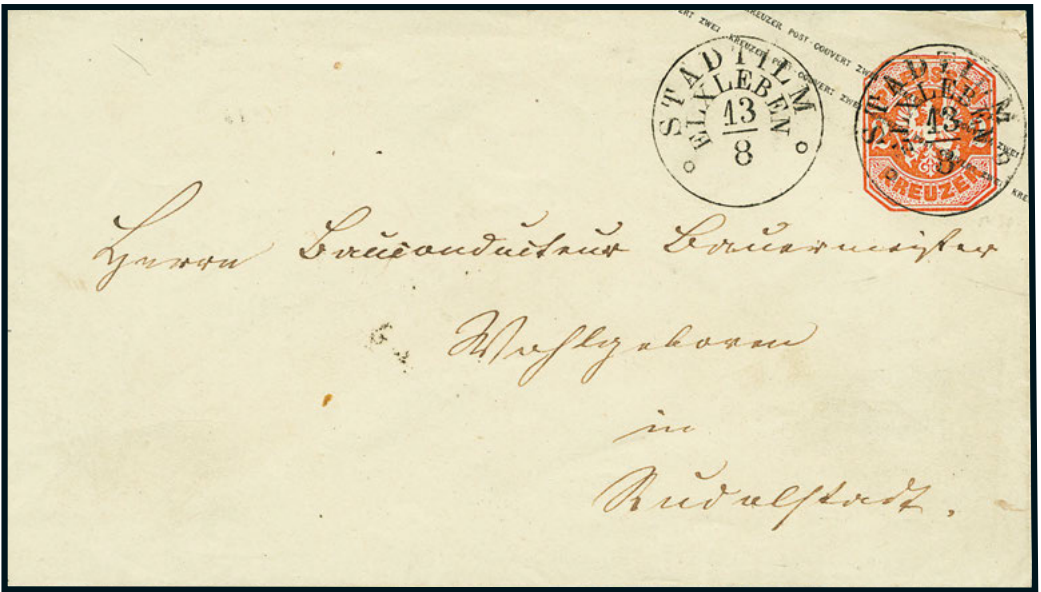 ERT ZWEI KREUZER POST-COUVERT ZWEI
KREUZER POST-COUVERT ZWEI
STADTILM
ELXLEBEN
13
8
STADTILM
ELXLEBEN
13
8
PREUSSEN
KREUZER
ZWEI
ZWEI KRE
Herrn Bauconducteur Bauermeister
Wohlgeboren
in
Rudolstadt.